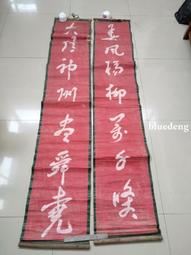 春风杨柳万千条
六亿神州尽舜尧
bluedeng